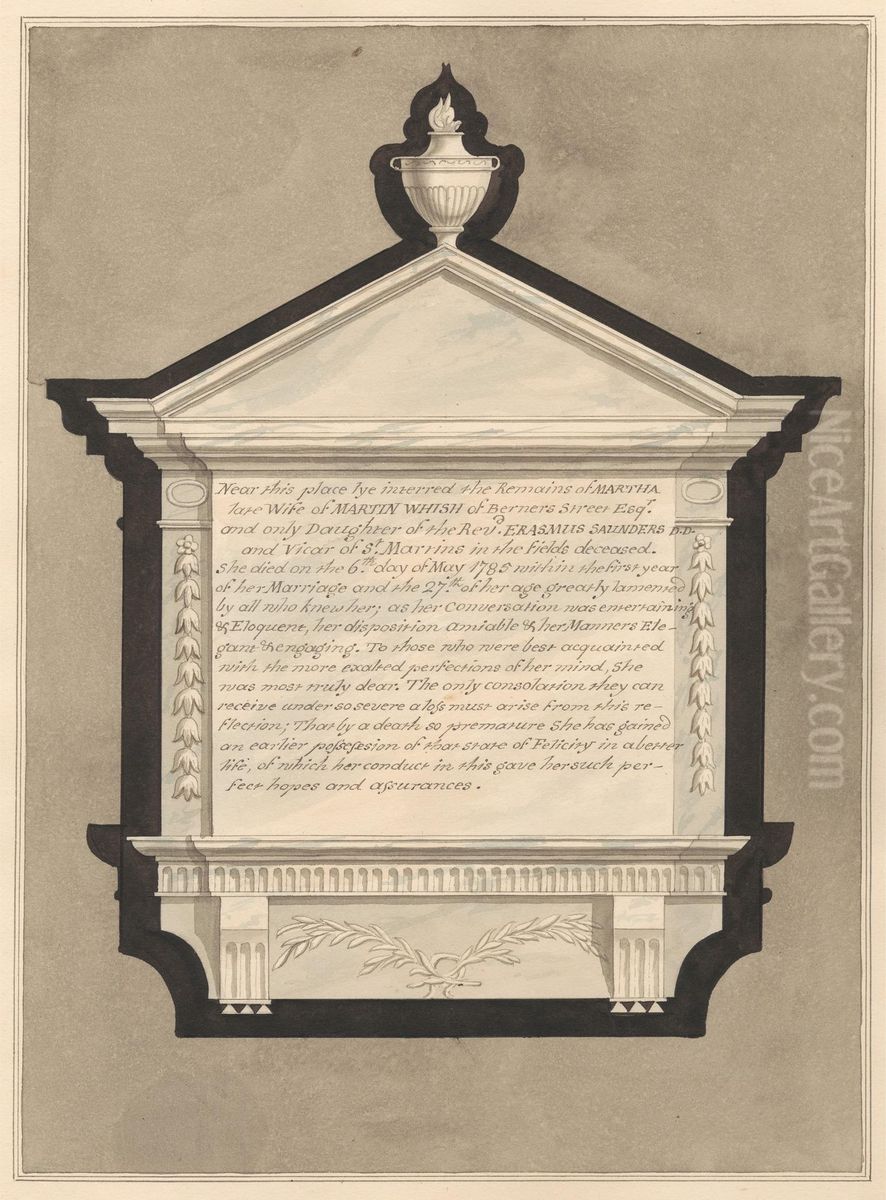 Near this place lye interred the Remains of MARTHA
late Wife of MARTIN WHISH of Berners Street Esqr.
and only Daughter of the Revd. ERASMUS SAUNDERS D.D.
and Vicar of St. Martins in the fields deceased.
She died on the 6th. day of May 1785 within the first year
of her Marriage and the 27th. of her age greatly lamented
by all who knew her; as her Conversation was entertaining
& Eloquent, her disposition amiable & her Manners Ele-
gant & engaging. To those who were best acquainted
with the more exalted perfections of her mind, She
was most truly dear. The only consolation they can
receive under so severe a loſs must arise from this re-
flection; That by a death so premature She has gained
an earlier poſseſsion of that state of Felicity in a better
life, of which her conduct in this gave her such per-
fect hopes and aſsurances.
NiceArtGallery.com